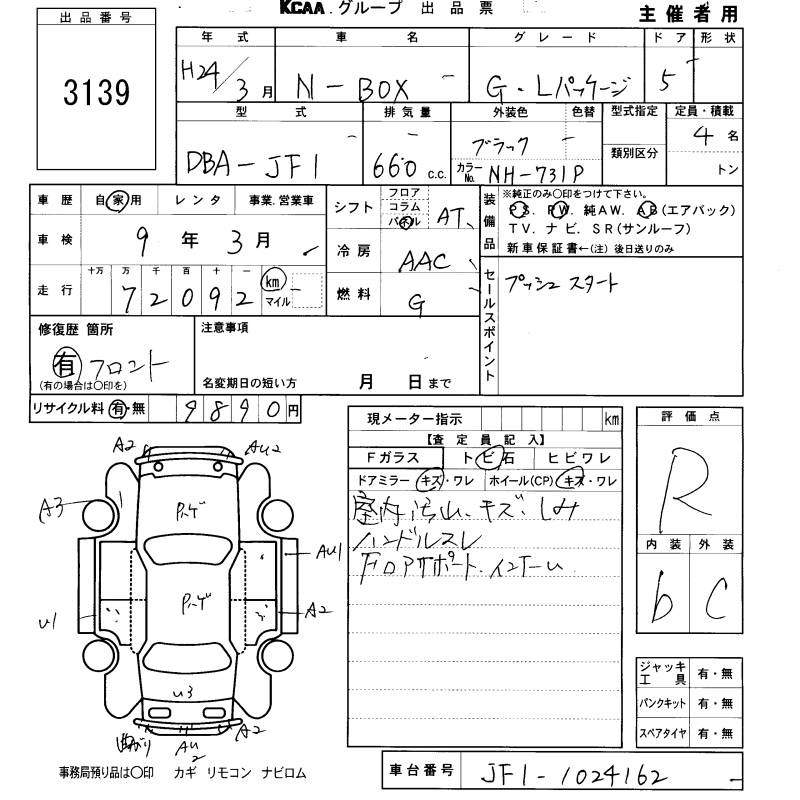 KCAA.グループ 出品票
主催者用
出品番号
3139
年式 車名 グレード ドア 形状
H24/3月 N-BOX G・Lパッケージ 5
型式 排気量 外装色 色替 型式指定 定員・積載
DBA-JF1 660 c.c. ブラック 類別区分 4名
カラーNo. NH-731P トン
車歴 自家用 レンタ 事業.営業車
車検 9年3月
走行 十万 万 千 百 十 一
72092 km マイル
シフト フロア コラム パネル AT
冷房 AAC
燃料 G
装備品
※純正のみ〇印をつけて下さい。
PS. PW. 純AW. AB(エアバック)
TV. ナビ. SR(サンルーフ)
新車保証書←(注)後日送りのみ
セールスポイント
プッシュスタート
修復歴 箇所
有 フロント
(有の場合は〇印を)
注意事項
名変期日の短い方 月 日まで
リサイクル料 有・無 9890円
現メーター指示 km
【査定員記入】
Fガラス トビ石 ヒビワレ
ドアミラー キズ・ワレ ホイール(CP) キズ・ワレ
室内汚れ、キズ、しみ
ハンドルスレ
評価点
R
内装 外装
b C
A2 AU2
A3
AU1
U1 A2
U3
A2
AU2
ジャッキ工具 有・無
パンクキット 有・無
スペアタイヤ 有・無
事務局預り品は〇印 カギ リモコン ナビロム
車台番号 JF1-1024162